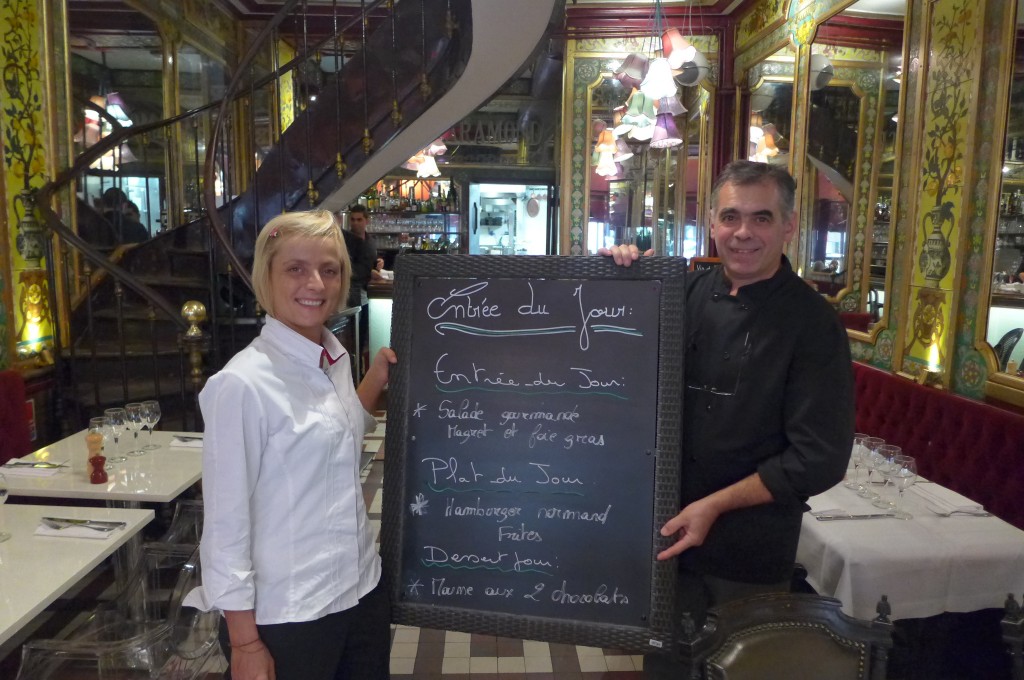 ARAMOND
Entrée du Jour:
Entrée du Jour:
* Salade gourmande
Magret et foie gras
Plat du Jour
* Hamburger normand
Frites
Dessert Jour:
* Mousse aux 2 chocolats